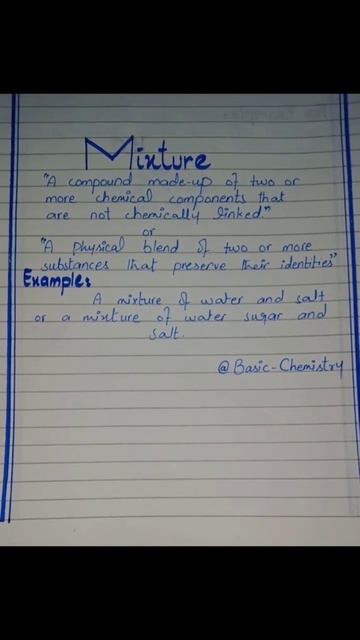 Mixture
"A compound made-up of two or
more chemical components that
are not chemically linked."
or
"A physical blend of two or more
substances that preserve their identities"
Examples
A mixture of water and salt
or a mixture of water sugar and
salt.
@Basic-Chemistry